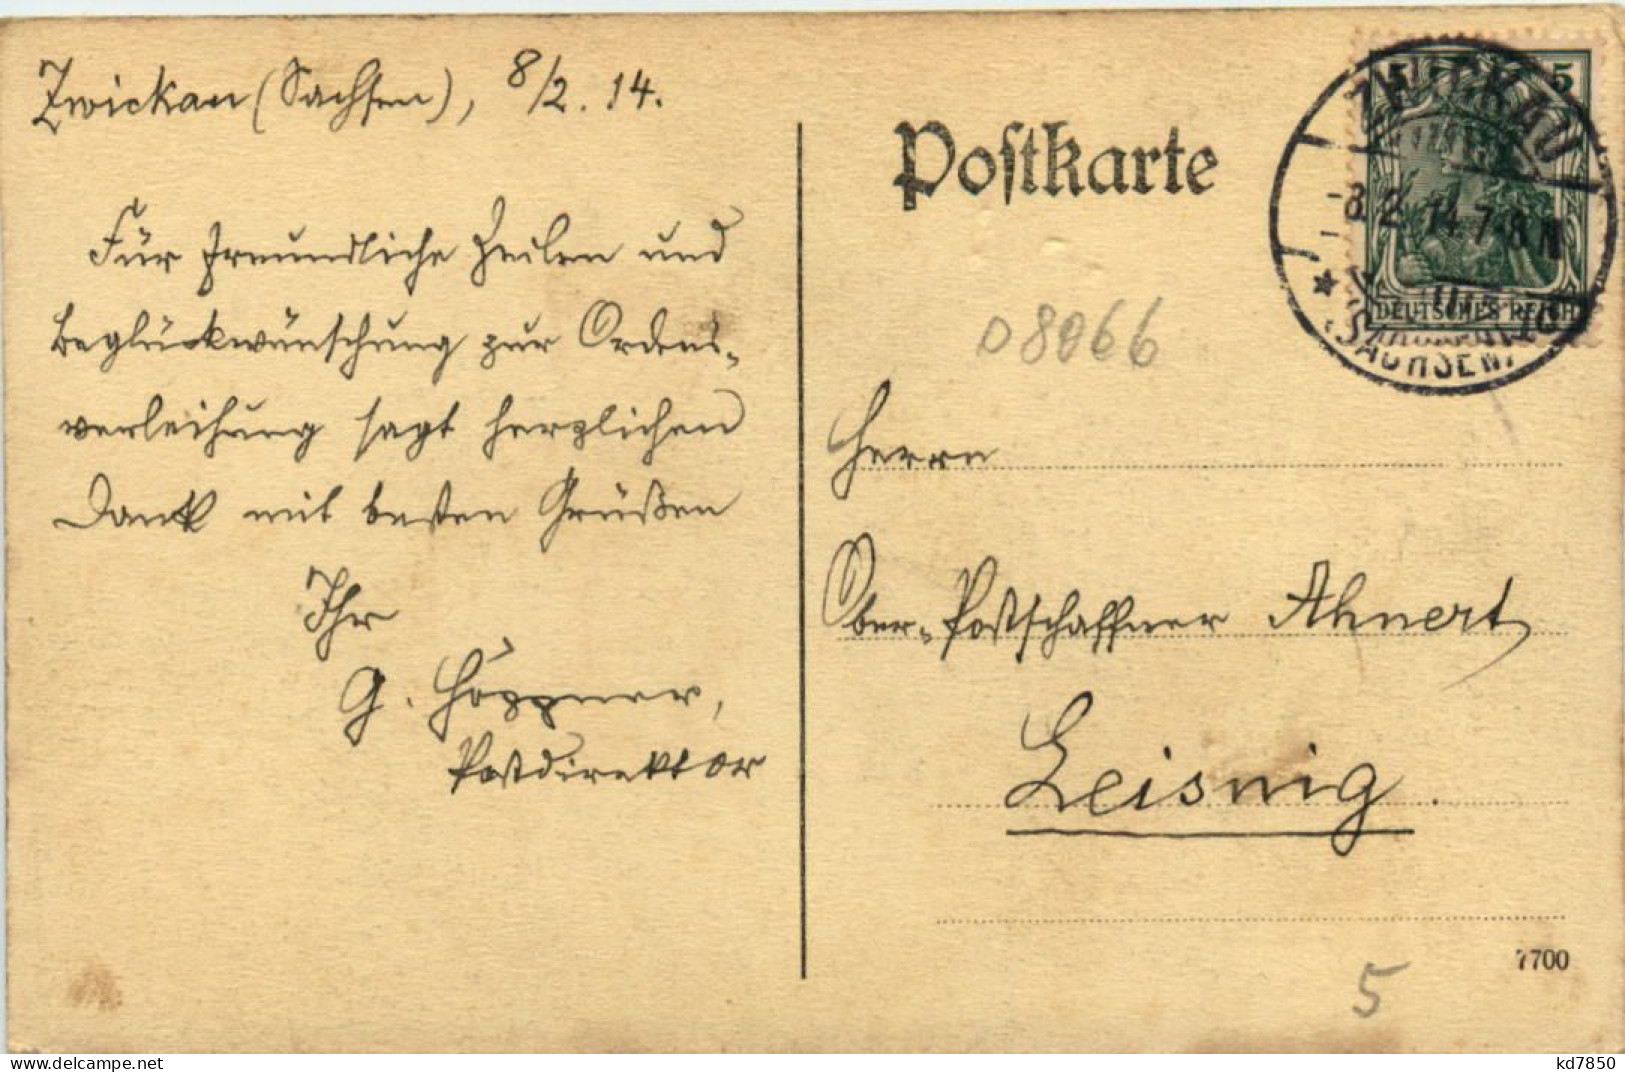 Zwickau (Sachsen), 8/2. 14.
Für freundliche Zeilen und
Beglückwünschung zur Ordens-
verleihung sagt herzlichen
Dank mit besten Grüßen
Ihr
G. Höppner,
Postdirektor
Postkarte
5 5
DEUTSCHES REICH
ZWICKAU
-8.2.14.7-8N
* (SACHSEN)
08066
Herrn
Ober-Postschaffner Ahnert
Leisnig.
7700
5
www.delcampe.net
kd7850